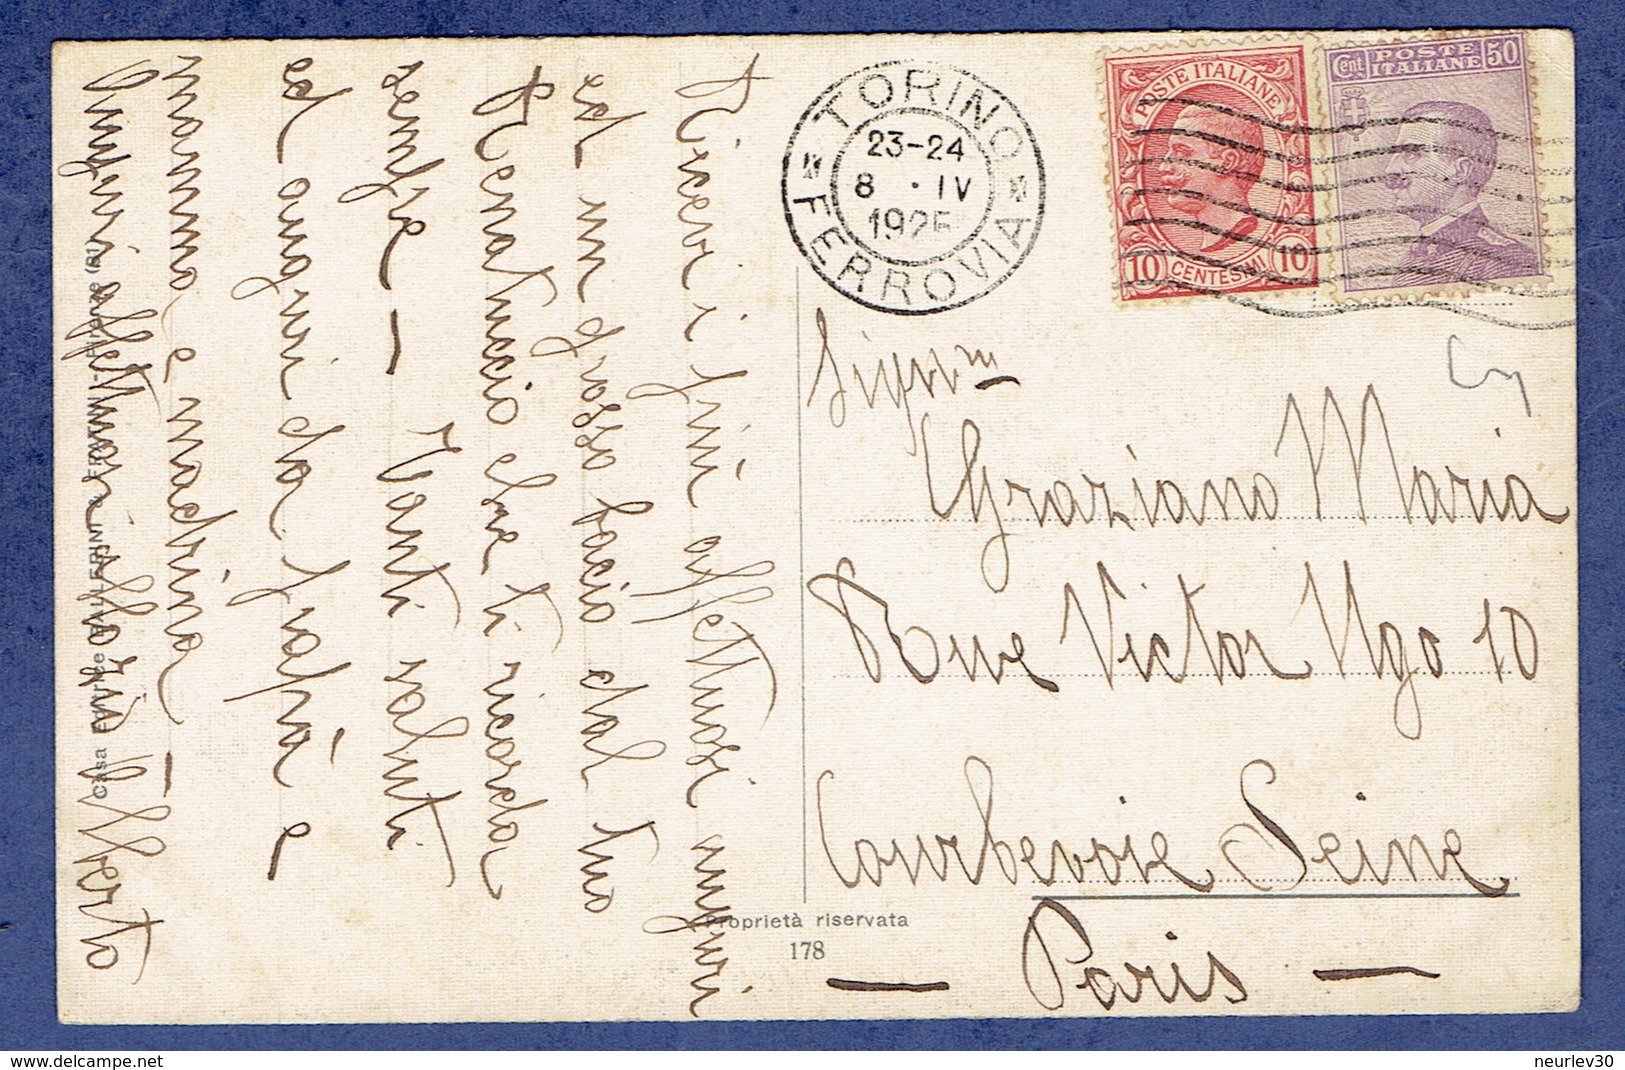 Ricevi i fini affettuosi auguri
ed un grosso bacio dal tuo
Renatuccio che ti ricorda
sempre — Tanti saluti
ed auguri da papà e
mamma e madrina —
Auguri affettuosi
Alberto
Casa Editrice BALLERINI & FRATINI - Firenze
TORINO
23-24
8 · IV
1925
FERROVIA
POSTE ITALIANE
10 CENTESMI 10
Cent POSTE 50
ITALIANE
Sign.na
Graziano Maria
Rue Victor Ugo 10
Courbevoie Seine
— Paris —
Proprietà riservata
178
neurlev30